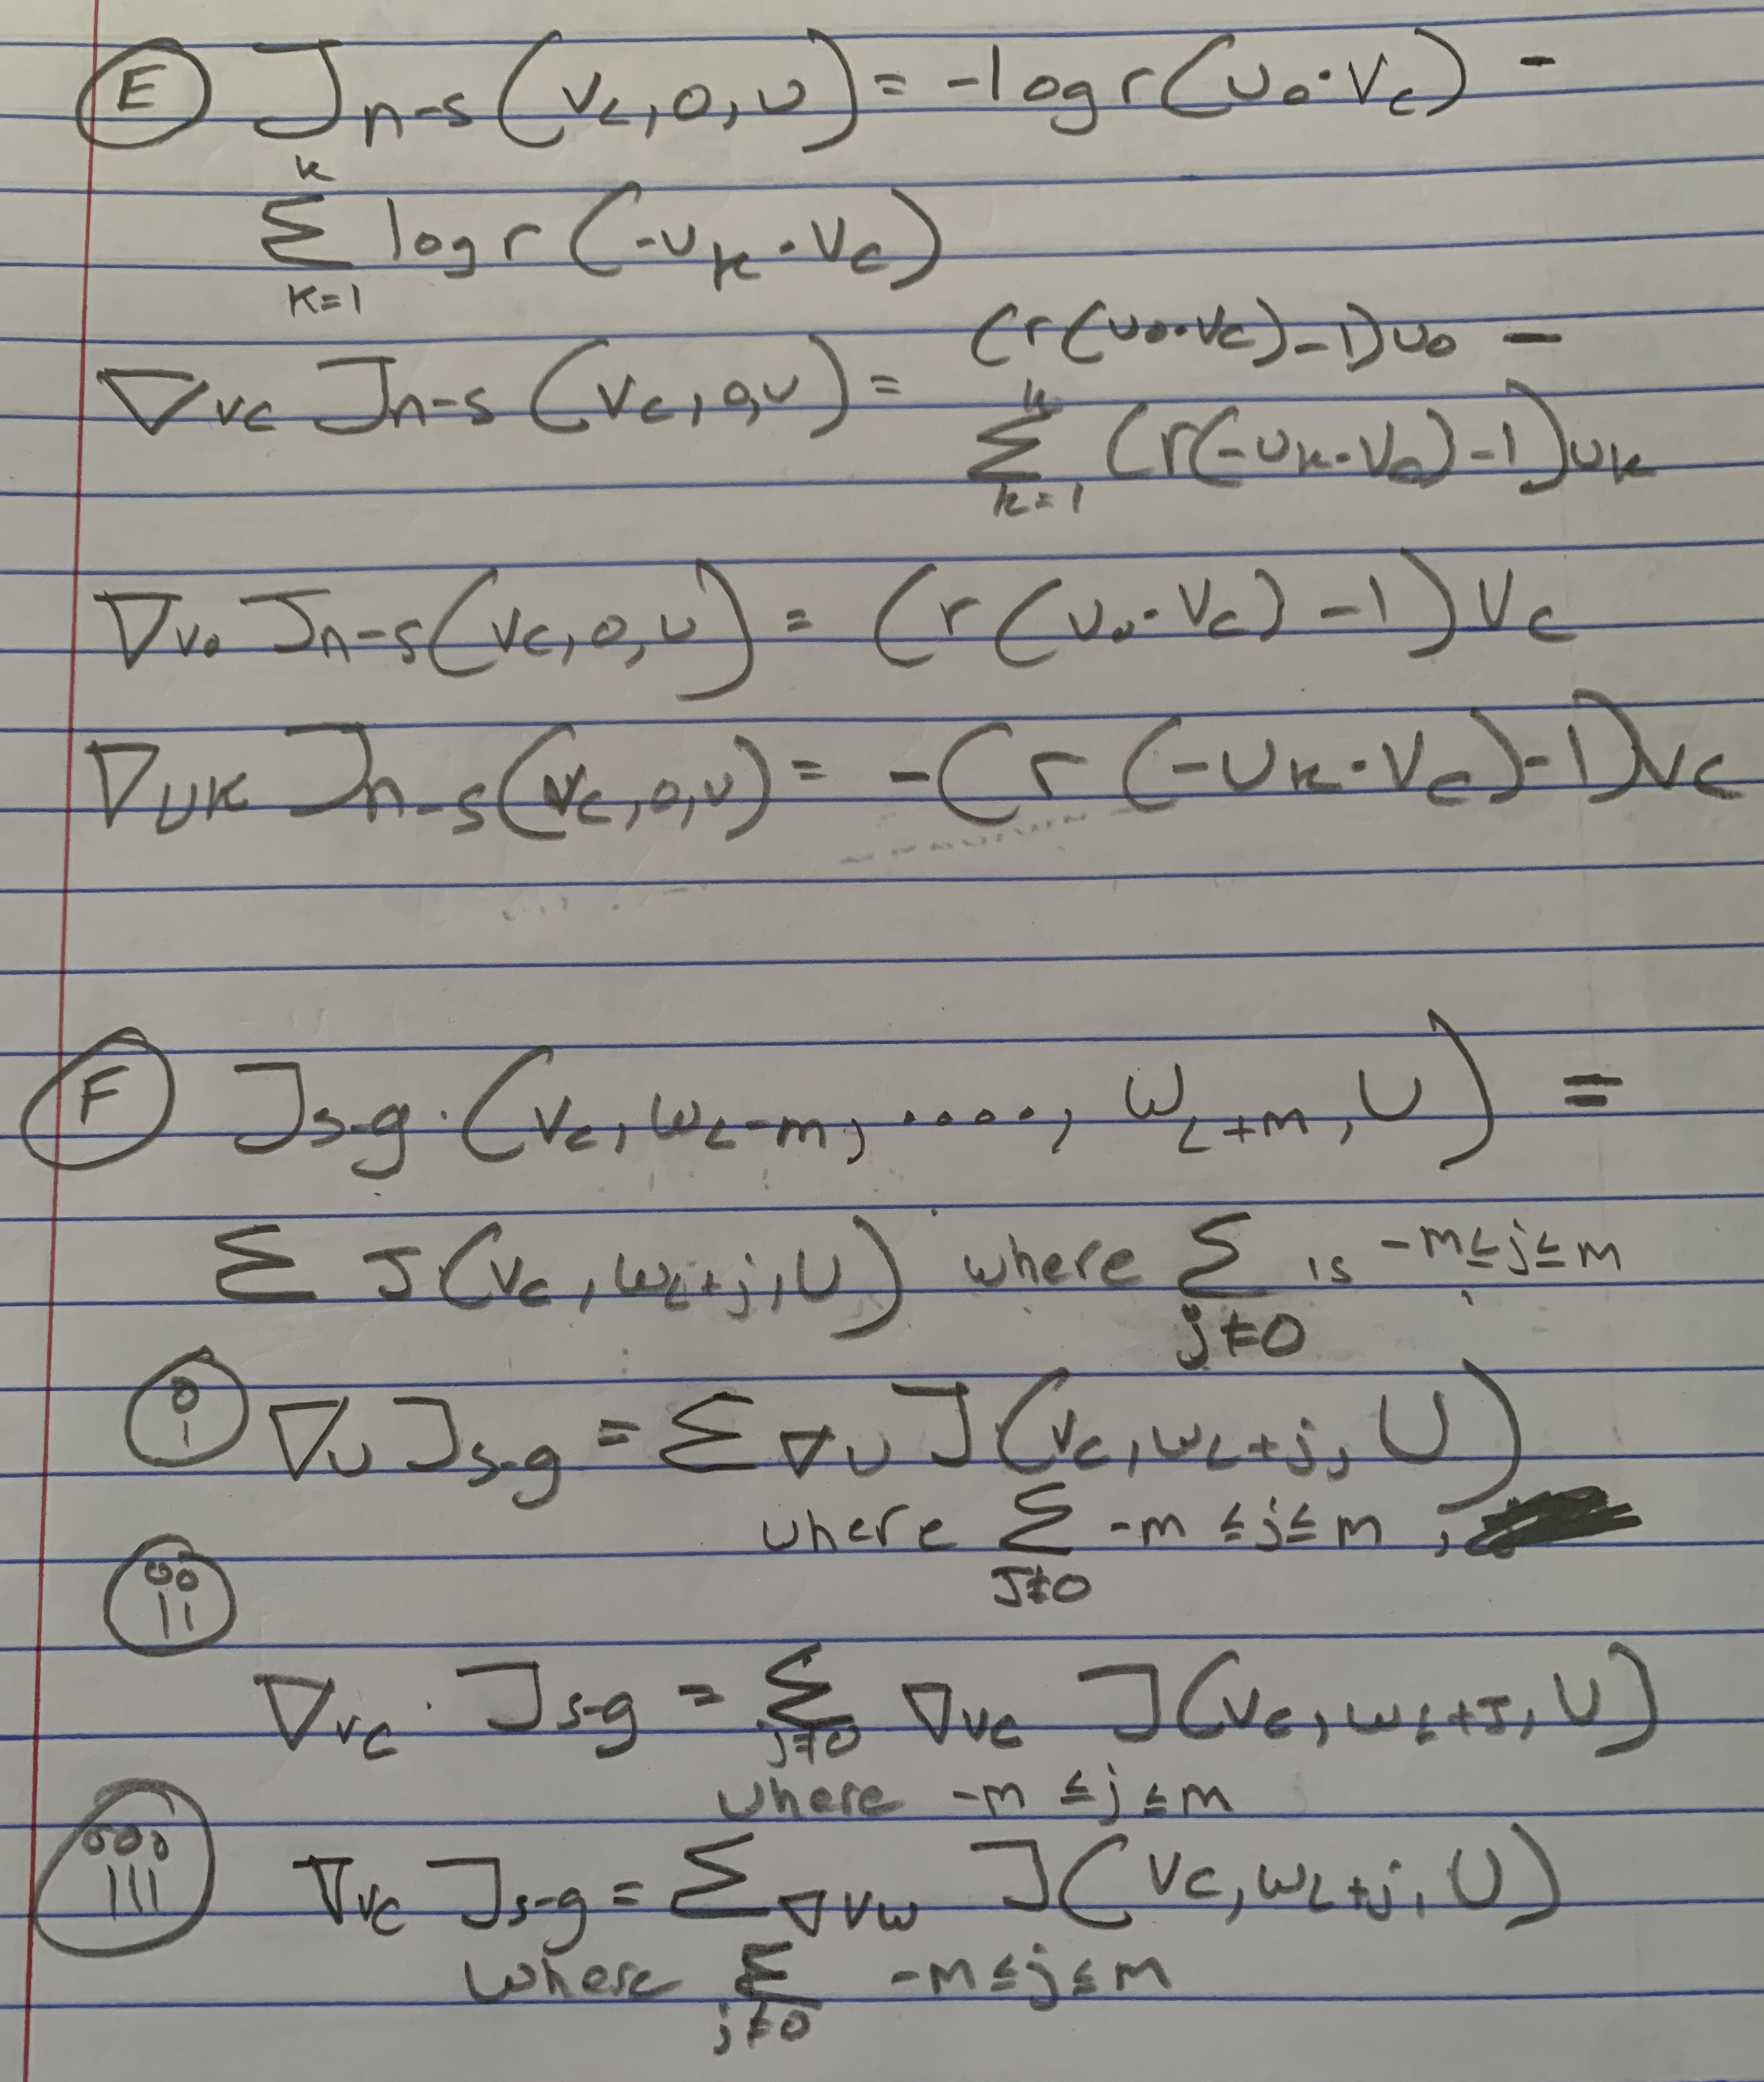 (E) J_{n-s}(v_c, o, U) = -log r(u_o · v_c) -
∑_{k=1}^{k} log r(-u_k · v_c)
∇_{vc} J_{n-s}(v_c, o, U) = (r(u_o · v_c) - 1)u_o -
∑_{k=1}^{k} (r(-u_k · v_c) - 1)u_k
∇_{vo} J_{n-s}(v_c, o, U) = (r(u_o · v_c) - 1)v_c
∇_{uk} J_{n-s}(v_c, o, U) = -(r(-u_k · v_c) - 1)v_c
(F) J_{s-g} · (v_c, w_{c-m}, ...., w_{c+m}, U) =
∑ J(v_c, w_{c+j}, U) where ∑_{j≠0} is -m≤j≤m
(i) ∇_U J_{s-g} = ∑ ∇_U J(v_c, w_{c+j}, U)
where ∑_{J≠0} -m ≤j≤ m ,
(ii)
∇_{vc} · J_{s-g} = ∑_{j≠0} ∇_{vc} J(v_c, w_{c+J}, U)
where -m ≤j≤m
(iii) ∇_{vc} J_{s-g} = ∑ ∇_{vw} J(v_c, w_{c+j}, U)
where ∑_{j≠0} -m≤j≤m